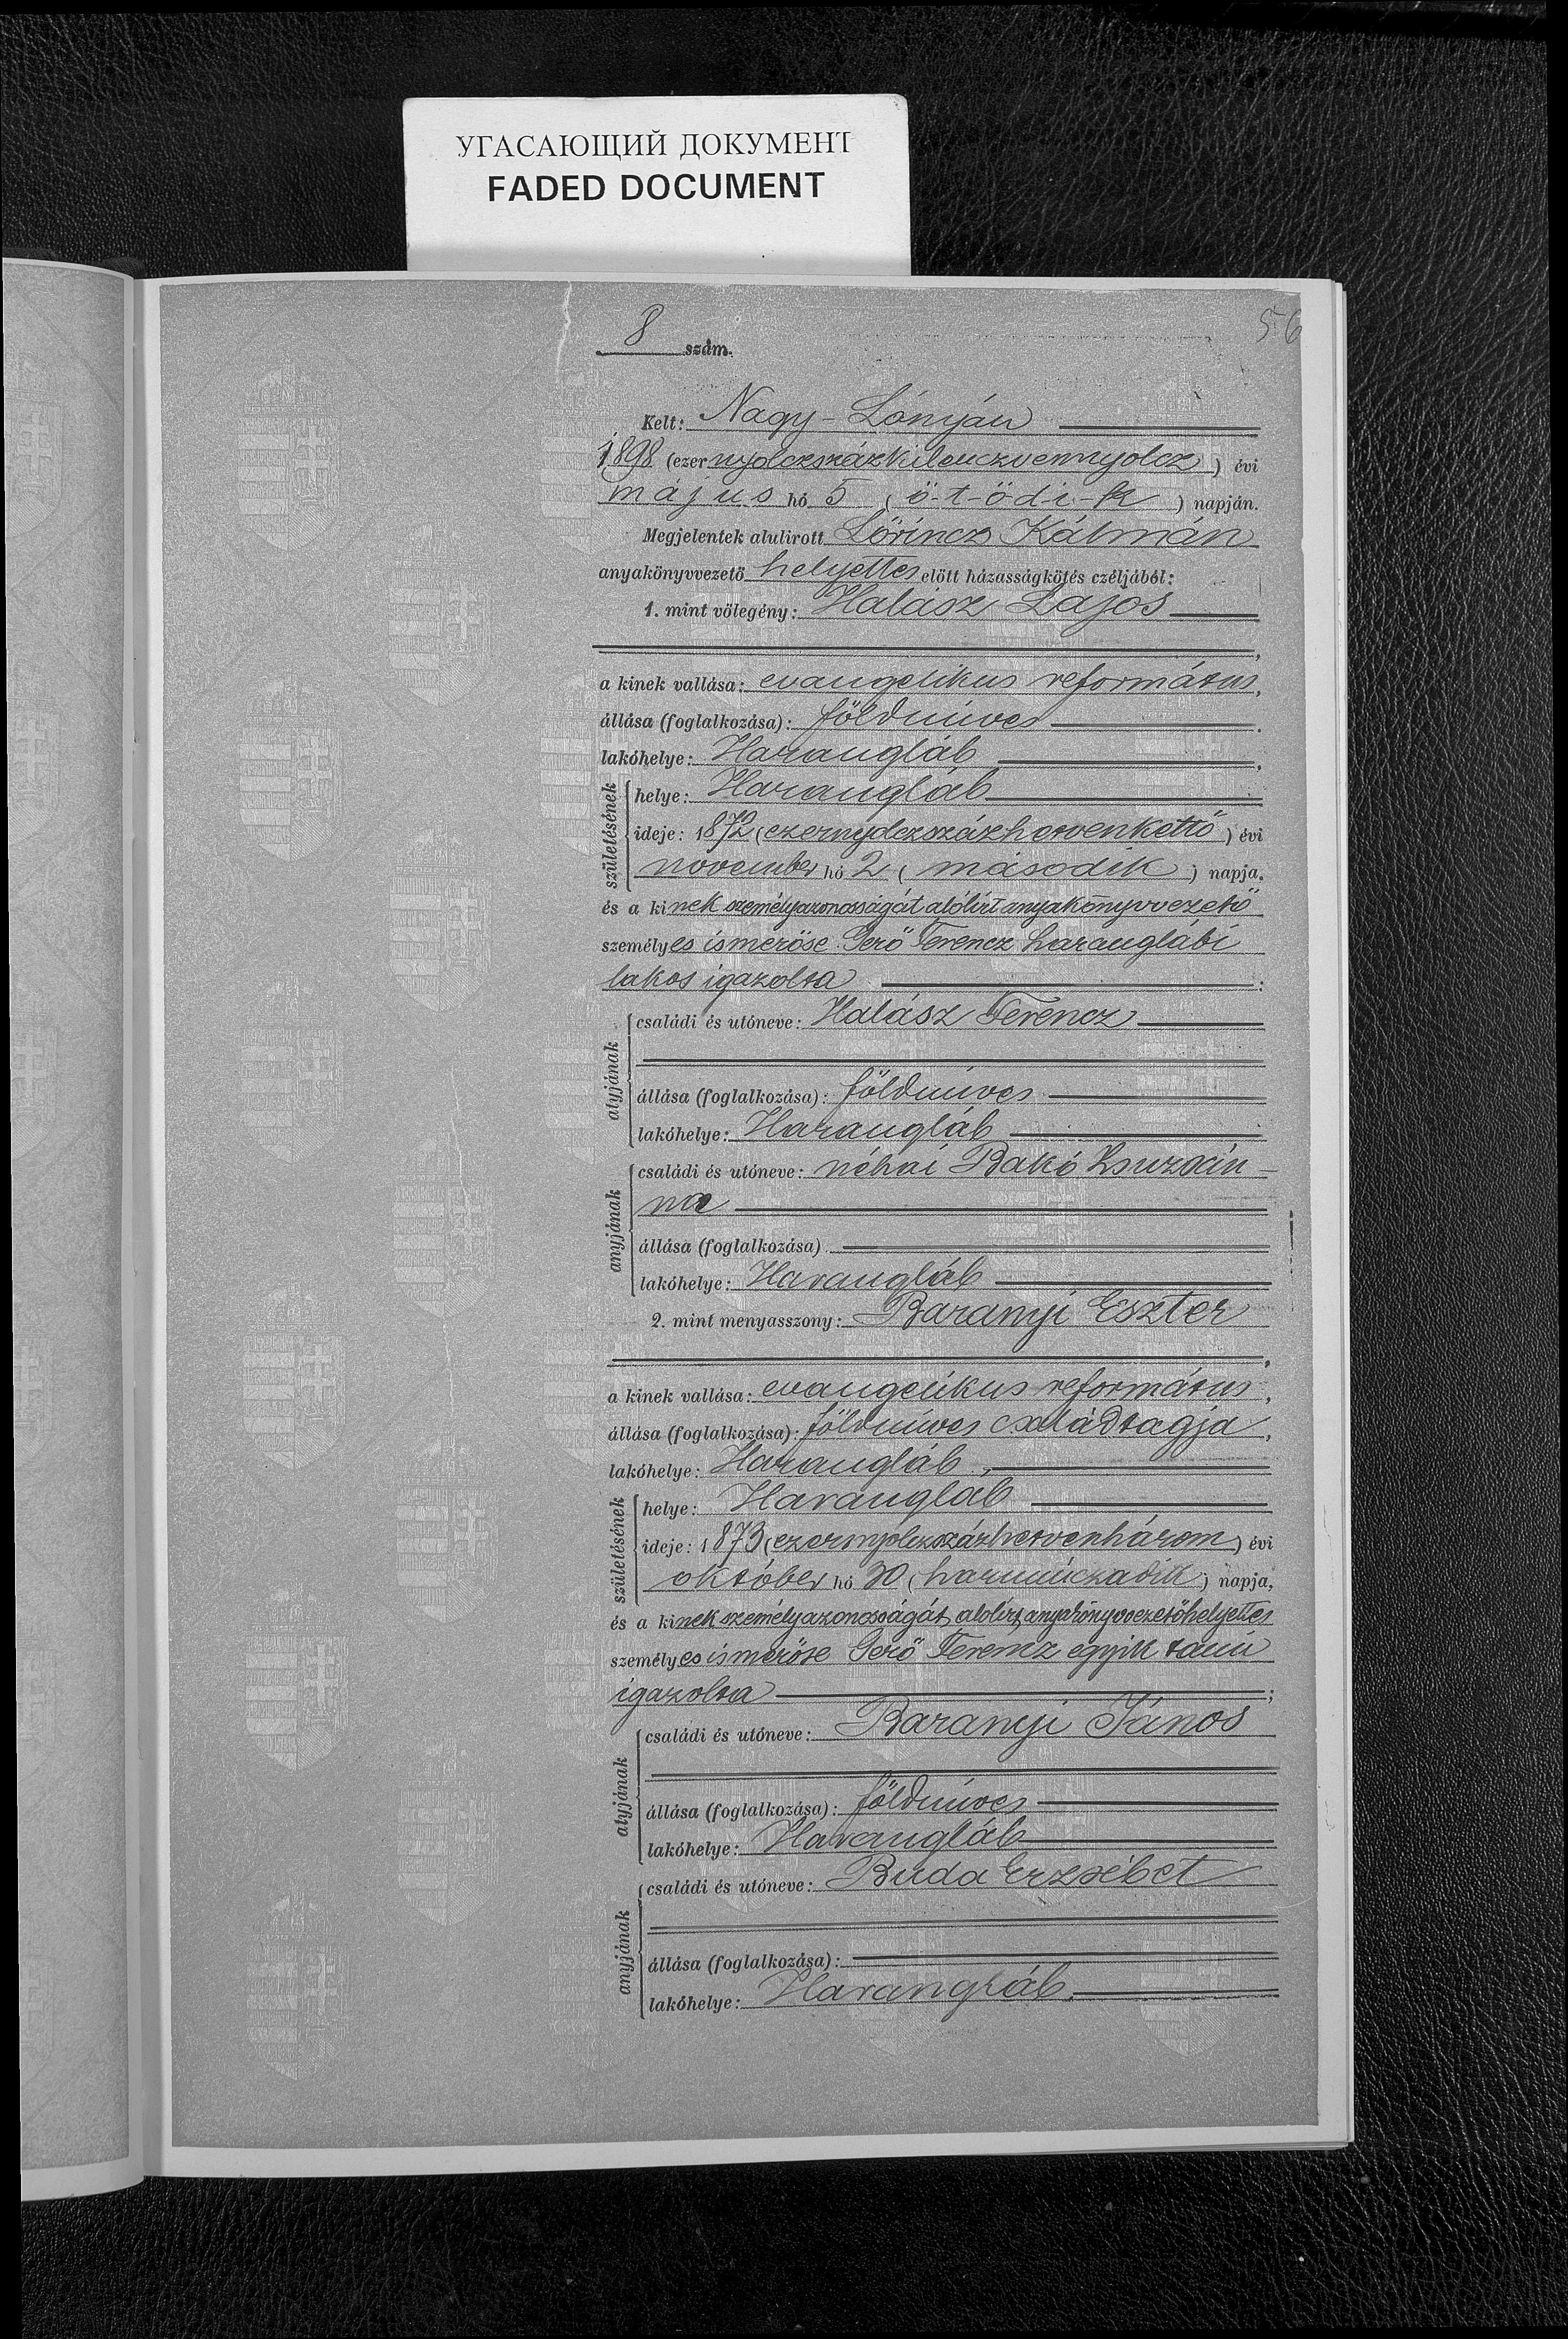 УГАСАЮЩИЙ ДОКУМЕНТ
FADED DOCUMENT
56
8 szám.
Kelt: Nagy-Lónyán
1898 (ezernyolczszázkilenczvennyolcz) évi
május hó 5 (ö-t-ö-d-i-k) napján.
Megjelentek alulirott Lőrincz Kálmán
anyakönyvvezető helyettes előtt házasságkötés czéljából:
1. mint vőlegény: Halász Lajos
a kinek vallása: evangelikus református,
állása (foglalkozása): földmíves
lakóhelye: Harangláb
születésének
helye: Harangláb
ideje: 1872 (ezernyolczszázhetvenkettő) évi
november hó 2 (második) napja,
és a kinek személyazonosságát alólírt anyakönyvvezető
személyes ismerőse Gerő Ferencz haranglábi
lakos igazolta ;
atyjának
családi és utóneve: Halász Ferencz
állása (foglalkozása): földmíves
lakóhelye: Harangláb
anyjának
családi és utóneve: néhai Bakó Zsuzsán-
na
állása (foglalkozása)
lakóhelye: Harangláb
2. mint menyasszony: Baranyi Eszter
a kinek vallása: evangelikus református,
állása (foglalkozása): földmíves családtagja,
lakóhelye: Harangláb
születésének
helye: Harangláb
ideje: 1873 (ezernyolczszázhetvenhárom) évi
október hó 30 (harminczadik) napja,
és a kinek személyazonosságát alólírt anyakönyvvezetőhelyettes
személyes ismerőse Gerő Ferencz egyik tanú
igazolta ;
atyjának
családi és utóneve: Baranyi János
állása (foglalkozása): földmíves
lakóhelye: Harangláb
anyjának
családi és utóneve: Buda Erzsébet
állása (foglalkozása):
lakóhelye: Harangláb